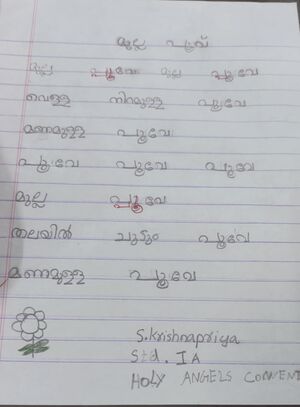 മുല്ല പൂവ്
മുല്ല പൂവേ മുല്ല പൂവേ
വെള്ള നിറമുള്ള പൂവേ
മണമുള്ള പൂവേ
പൂവേ പൂവേ പൂവേ
മുല്ല പൂവേ
തലയിൽ ചൂടും പൂവേ
മണമുള്ള പൂവേ
S.Krishnapriya
Std. I A
HOLY ANGELS CONVENT